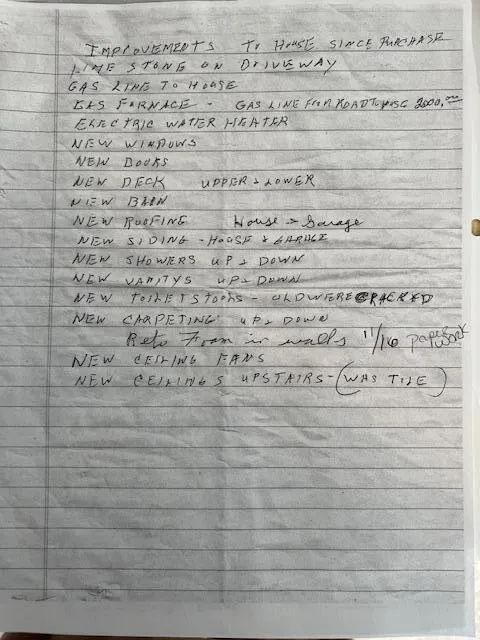 IMPROVEMENTS TO HOUSE SINCE PURCHASE
LIME STONE ON DRIVEWAY
GAS LINE TO HOUSE
GAS FURNACE - GAS LINE FROM ROAD TO HOUSE 2000.00
ELECTRIC WATER HEATER
NEW WINDOWS
NEW DOORS
NEW DECK UPPER & LOWER
NEW BARN
NEW ROOFING House & Garage
NEW SIDING - HOUSE & GARAGE
NEW SHOWERS UP & DOWN
NEW VANITYS UP & DOWN
NEW TOILET STOOLS - OLD WERE CRACKED
NEW CARPETING UP & DOWN
in walls 1/16 paper work
NEW CEILING FANS
NEW CEILINGS UPSTAIRS - (WAS TILE)